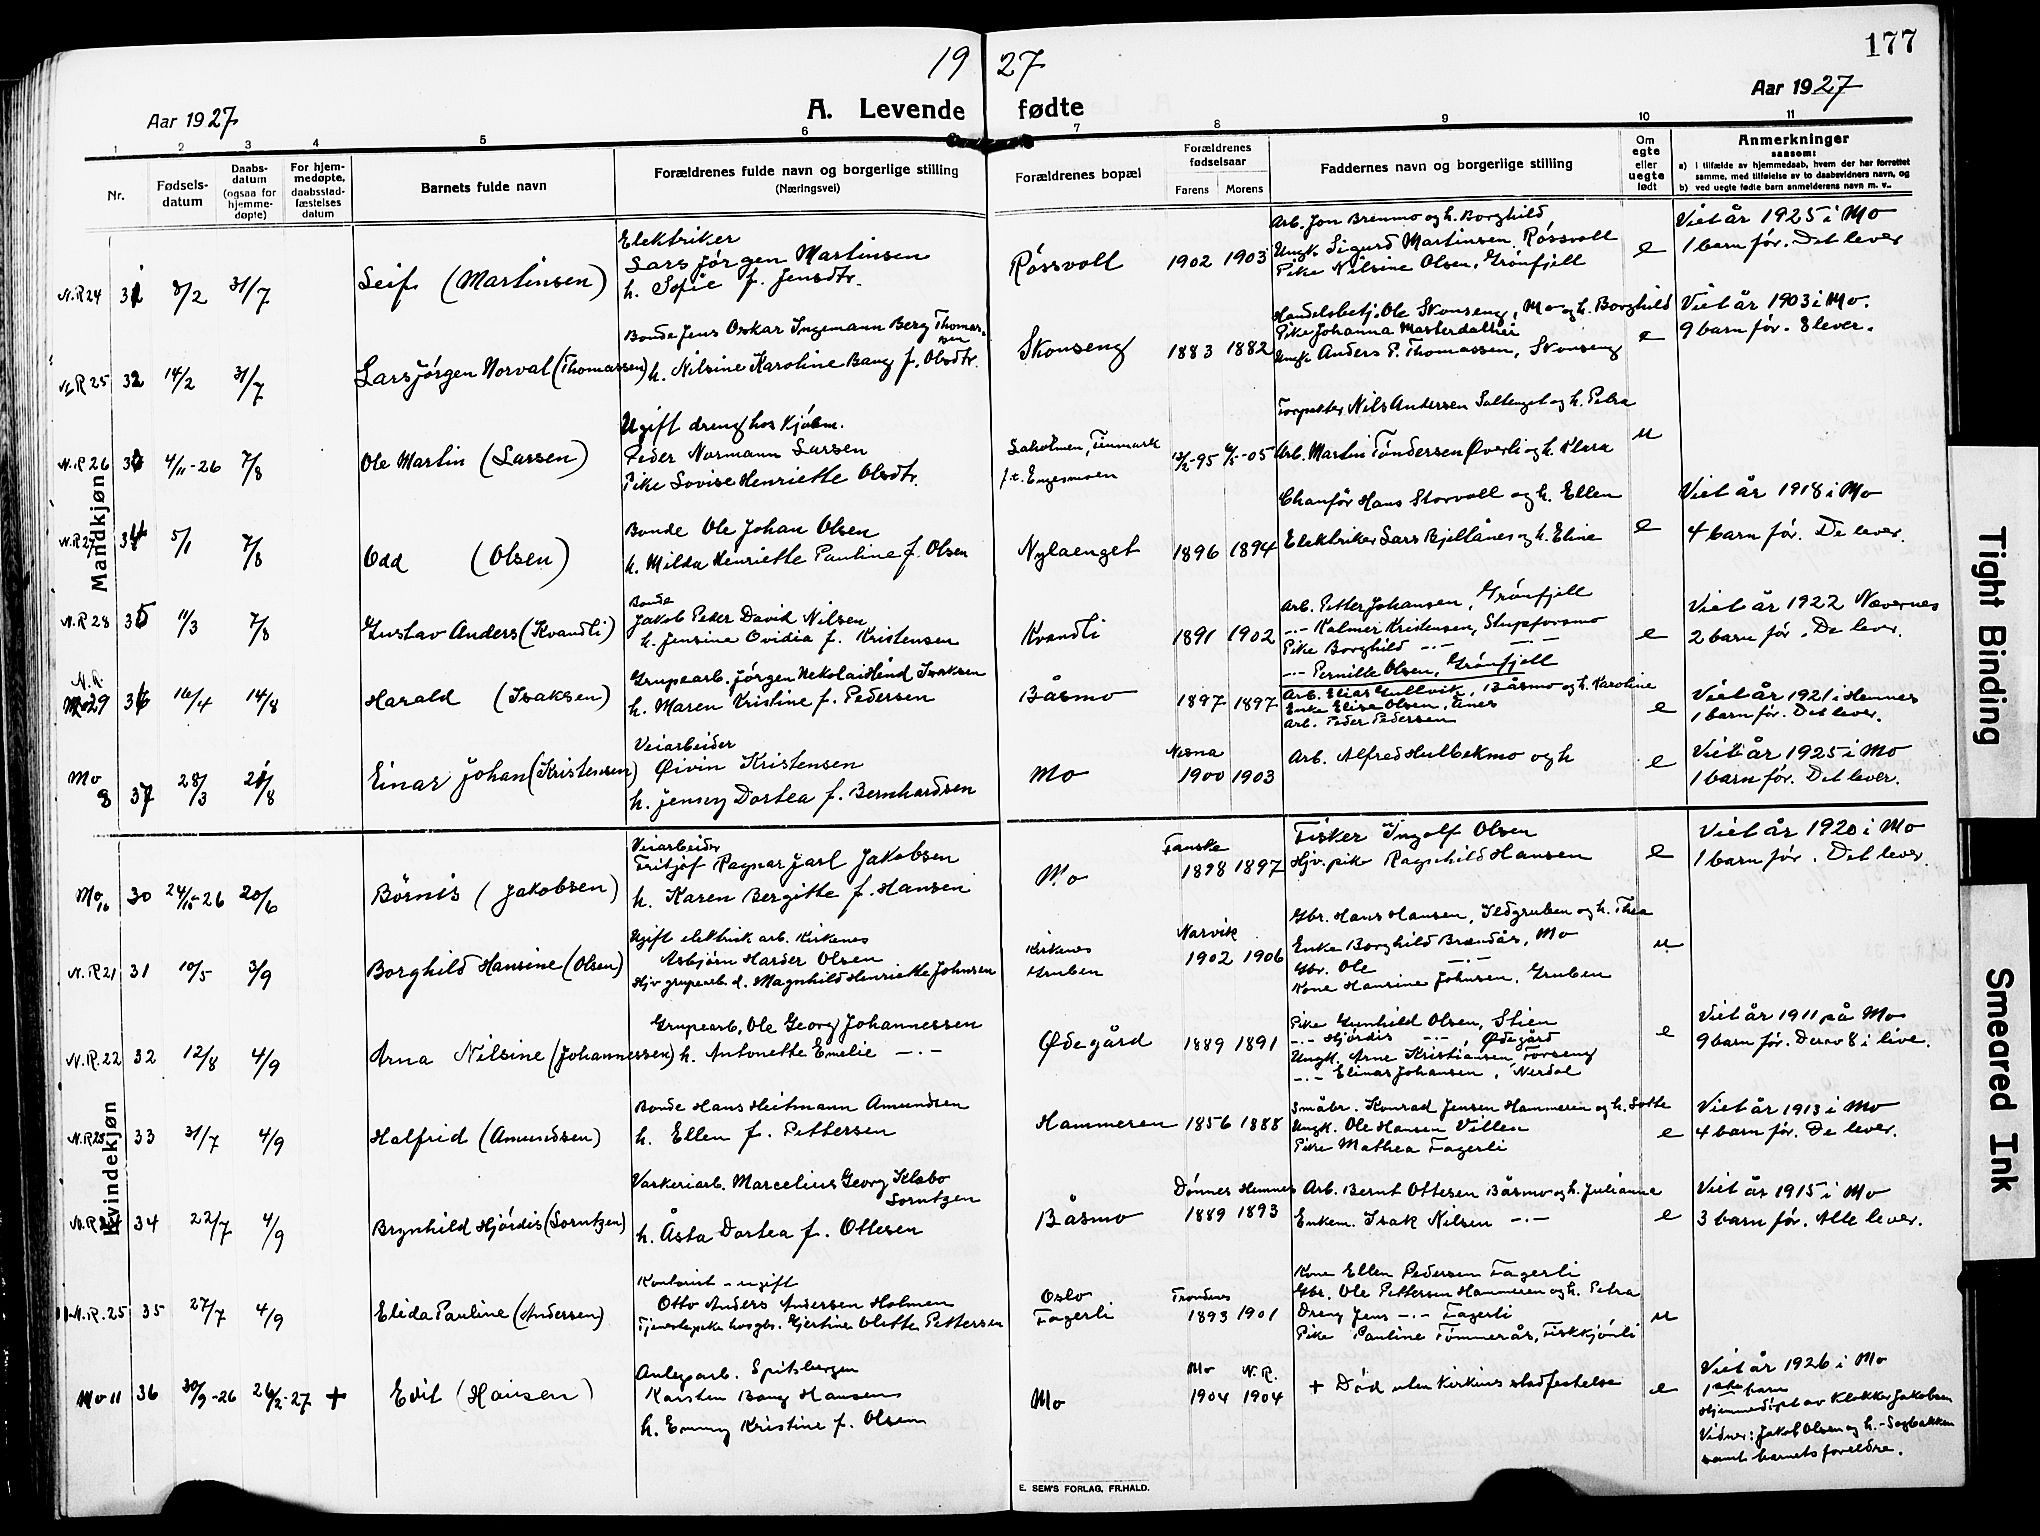 19 27
177
Aar 1927
A. Levende fødte
Aar 1927
1 2 3 4 5 6 7 8 9 10 11
Nr.
Fødsels-
datum
Daabs-
datum
(ogsaa for
hjemme-
døpte)
For hjem-
medøpte,
daabsstad-
fæstelses
datum
Barnets fulde navn
Forældrenes fulde navn og borgerlige stilling
(Næringsvei)
Forældrenes bopæl
Forældrenes
fødselsaar
Farens Morens
Faddernes navn og borgerlige stilling
Om
egte
eller
uegte
født
Anmerkninger
saasom:
a) i tilfælde av hjemmedaab, hvem der har forrettet
samme, med tilføielse av to daabsvidners navn, og
b) ved uegte fødte barn anmelderens navn m. v..
Mandkjøn
N.R 24 31 8/2 31/7
Leif (Martinsen)
Elektriker
Lars Jørgen Martinsen
h. Sofie f. Jensdtr.
Røssvoll
1902 1903
Arb. Jon Brenmo og h. Borghild,
Ungk. Sigurd Martinsen, Røssvoll
Pike Nilsine Olsen, Grønfjell
e
Viet år 1925 i Mo
1 barn før. Det lever
N.R 25 32 14/2 31/7
Lars Jørgen Norval (Thomassen)
Bonde Jens Oskar Ingemann Berg Thomas-
sen
h. Nilsine Karoline Bang f. Olsdtr.
Skonseng
1883 1882
Handelsbetj. Ole Skonseng, Mo og h. Borghild
Pike Johanna
Ungk. Anders P. Thomassen, Skonseng
e
Viet år 1903 i Mo.
9 barn før. 8 lever.
N.R 26 33 4/11-26 7/8
Ole Martin (Larsen)
Ugift dreng hos Kjøbm.
Peder Normann Larsen
Pike Lovise Henriette Olsdtr.
Finmark
f.t. Engesmoen
Nils Andersen Saltenget og h. Petra
Arb. Martin Tøndersen Øverli og h. Klara
u
N.R 27 34 5/1 7/8
Odd (Olsen)
Bonde Ole Johan Olsen
h. Milda Henriette Pauline f. Olsen
Nylaenget
1896 1894
Chauffør Hans Storvoll og h. Ellen
Elektriker Lars Bjellånes og h. Eline
e
Viet år 1918 i Mo
4 barn før. De lever.
N.R 28 35 11/3 7/8
Gustav Anders (Kvandli)
Bonde
Jakob Peder David Nilsen
h. Jensine Ovidia f. Kristensen
Kvandli
1891 1902
Arb. Petter Johansen, Grønfjell
-"- Kalmer Kristensen, Stupforsmo
Pike Borghild -"-
-"- Pernille Olsen, Grønfjell
e
Viet år 1922 Nævernes
2 barn før. De lever.
N.R.
29 36 16/4 14/8
Harald (Isaksen)
Grupearb. Jørgen Nekolai Hånd Isaksen
h. Maren Kristine f. Pedersen
Båsmo
1897 1897
Arb. Elias Gullvik, Båsmo og h. Karoline
Enke Elise Olsen, Anes
Arb. Peder Pedersen
e
Viet år 1921 i Hemnes
1 barn før. Det lever.
Mo
8 37 28/3 21/8
Einar Johan (Kristensen)
Veiarbeider
Øivin Kristensen
h. Jensey Dortea f. Bernhardsen
Mo
Nesna
1900 1903
Arb. Alfred Hulbekmo og h
e
Viet år 1925 i Mo
1 barn før. Det lever.
Kvindekjøn
Mo 10 30 26 20/6
Børnis (Jakobsen)
Veiarbeider
Fritjof Ragnar Jarl Jakobsen
h. Karen Bergitte f. Hansen
Mo
Fauske
1898 1897
Fisker Ingolf Olsen
Hjv. pike Ragnhild Hansen
e
Viet år 1920 i Mo
1 barn før. Det lever.
N.R 21 31 10/5 3/9
Borghild Hansine (Olsen)
Ugift elektrisk arb. Kirkenes
Asbjørn Harder Olsen
Hjv grupearb. d. Magnhild Henriette Johnsen
Kirkenes
Gruben
Narvik
1902 1906
Gbr. Hans Hansen, Ildgruben og h. Thea
Enke Borghild Brendås, Mo
Gbr. Ole -"-
Kone Hansine Johnsen, Gruben
u
N.R. 22 32 12/8 4/9
Arna Nilsine (Johannessen)
Grupearb. Ole Georg Johannessen
h. Antonette Emelie -"-
Ødegård
1889 1891
Pike Gunhild Olsen, Stien
-"- Hjørdis -"-, Ødegård
Ungk. Arne Kristiansen Forseng
-"- Elinar Johansen, Nerdal
e
Viet år 1911 på Mo
9 barn før. Derav 8 i live.
N.R 23 33 31/7 4/9
Halfrid (Amundsen)
Bonde Hans Heitmann Amundsen
h. Ellen f. Pettersen
Hammeren
1856 1888
Småbr. Konrad Jensen Hammeren og h. Lotte
Ungk. Ole Hansen Villen
Pike Mathea Fagerli
e
Viet år 1913 i Mo
4 barn før. De lever.
N.R 24 34 22/7 4/9
Brynhild Hjørdis (Sorntzen)
Vaskeriarb. Marcelius Georg Klabo
Sorntzen
h. Åsta Dortea f. Ottesen
Båsmo
Dønnes Hemnes
1889 1893
Arb. Bernt Ottesen Båsmo og h. Julianne
Enkem. Isak Nilsen -"-
e
Viet år 1915 i Mo
3 barn før. Alle lever.
N.R. 25 35 27/7 4/9
Elida Pauline (Andersen)
Kontorist - ugift
Otto Anders Andersen Holmen
Tjenestepike hos gbr. Gjertine Olette Pettersen
Oslo
Fagerli
Trondenes
1893 1901
Kone Ellen Pedersen Fagerli
Gbr. Ole Pettersen Hammeren og h. Petra
Dreng Jens -"- Fagerli
Pike Pauline Tømmerås, Fiskkjønli
u
Mo 11 36 30/9-26 26/2-27 +
Edit (Hansen)
Anlegsarb. Spitsbergen
Karsten Bang Hansen
h. Emmy Kristine f. Olsen
Mo
Mo N.R.
1904 1904
+ Død uten kirkens stadfestelse
e
Viet år 1926 i Mo
1ste barn
Hjemmedøpt av Klokker Jakobsen
Vidner: Jakob Olsen og h. - Sagbakken
samt barnets foreldre.
E. SEM'S FORLAG, FR.HALD.
Tight Binding
Smeared Ink